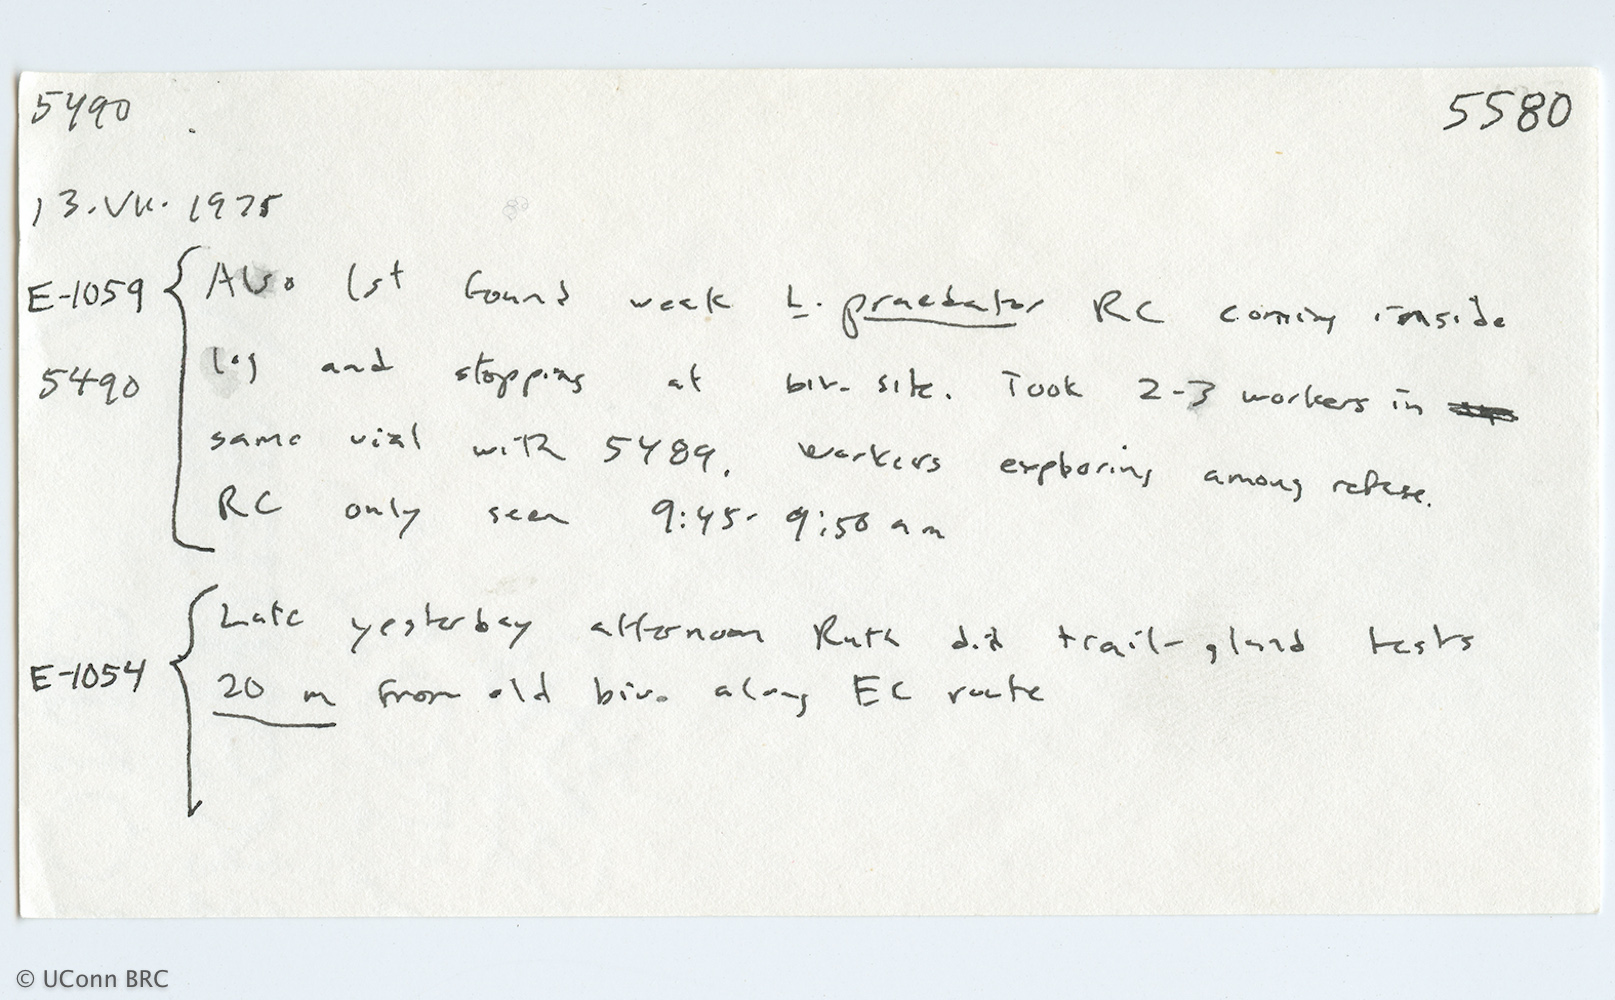 5490 5580
13.VII.1975
E-1059 Also 1st found weak L. praedator RC coming inside
5490 log and stopping at biv. site. Took 2-3 workers in
same vial with 5489. Workers exploring among refuse.
RC only seen 9:45-9:50 am
Late yesterday afternoon Ruth did trail-gland tests
E-1054 20 m from old biv. along EC route
© UConn BRC